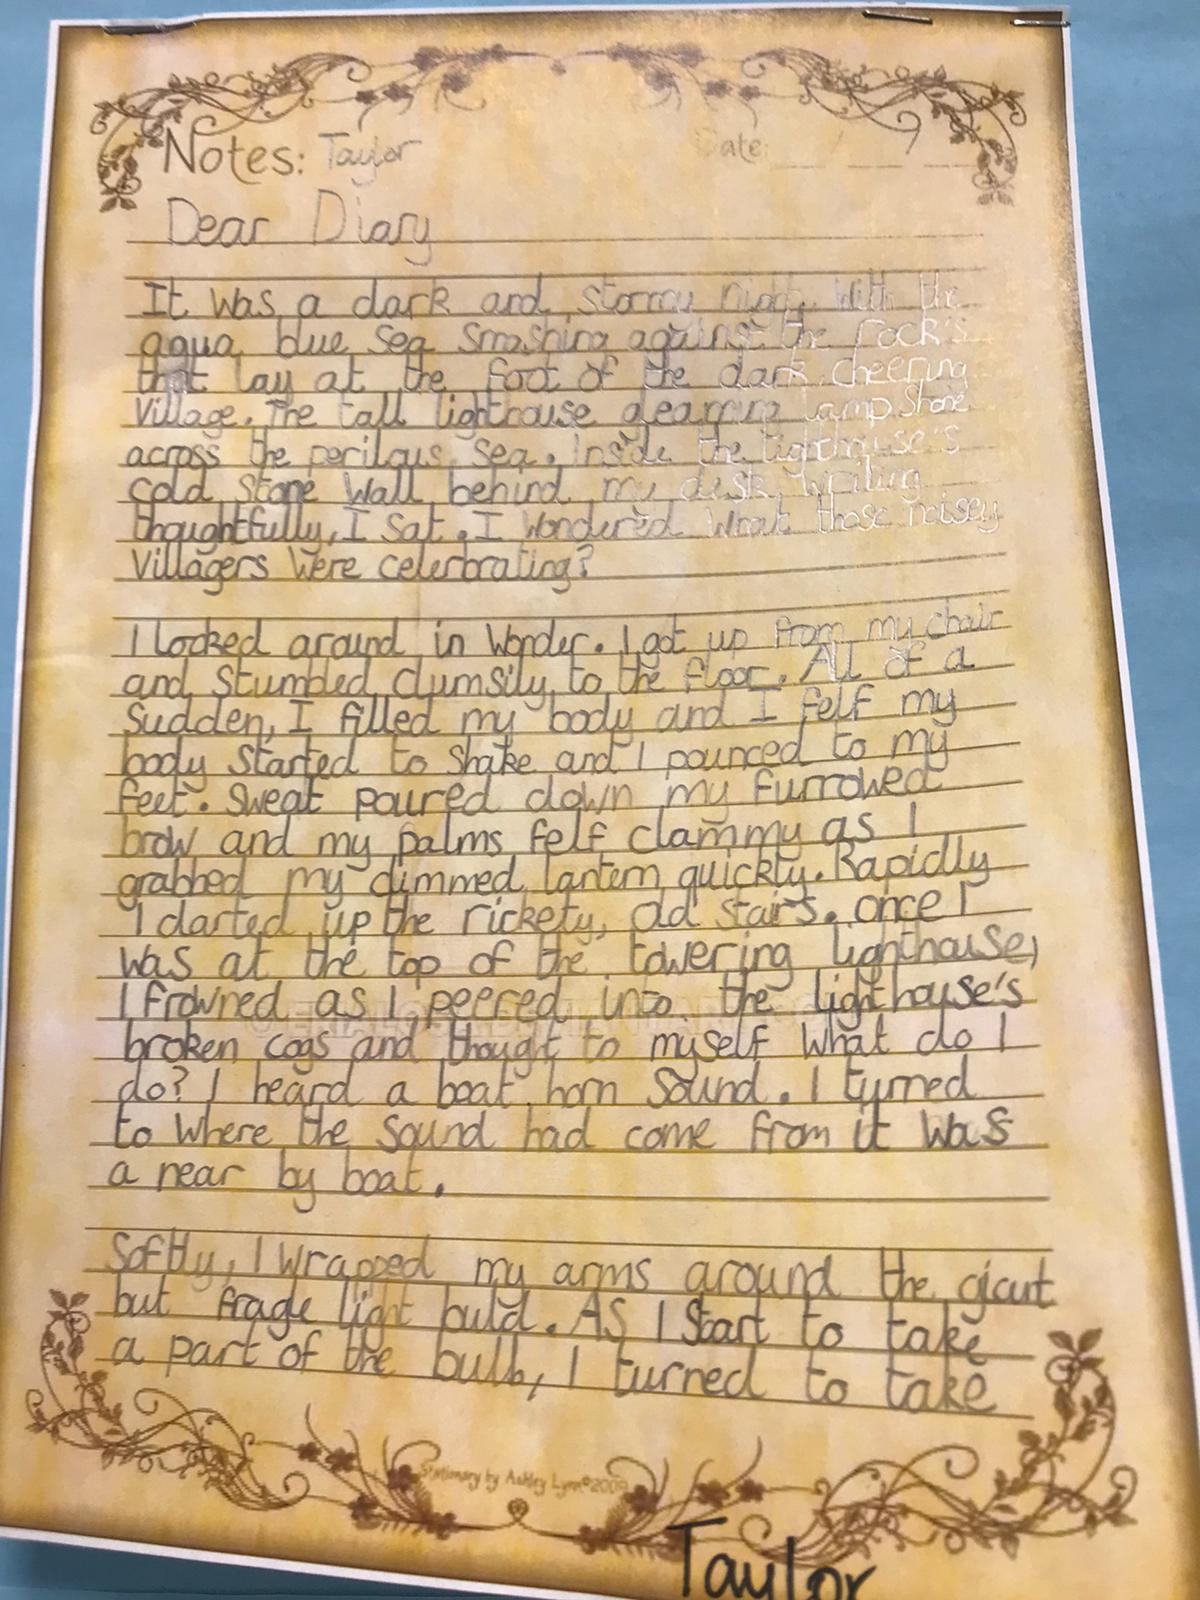 Notes: Taylor
Date: __/__/__
Dear Diary
It was a dark and stormy night. With the
aqua blue sea smashing against the rock's
that lay at the foot of the dark cheering
Village. The tall lighthouse gleaming lamp shone
across the perilous sea. Inside the lighthouse's
cold stone wall behind my desk, writing
thoughtfully, I sat. I wondered what those noisey
Villagers were celerbrating?
I looked around in wonder. I got up from my chair
and stumbled clumsily to the floor. All of a
sudden, I filled my body and I felf my
body started to shake and I pounced to my
feet. Sweat poured down my furrowed
brow and my palms felf clammy as I
grabbed my dimmed lantern quickly. Rapidly
I darted up the rickety, old stairs. once I
was at the top of the towering lighthouse,
I frowned as I peered into the lighthouse's
broken cogs and thought to myself What do I
do? I heard a boat horn sound. I turned
to where the sound had come from it was
a near by boat.
Softly, I wrapped my arms around the giant
but fragle light buld. As I start to take
a part of the bulb, I turned to take
Stationary by Ashley Lynn©2009
Taylor